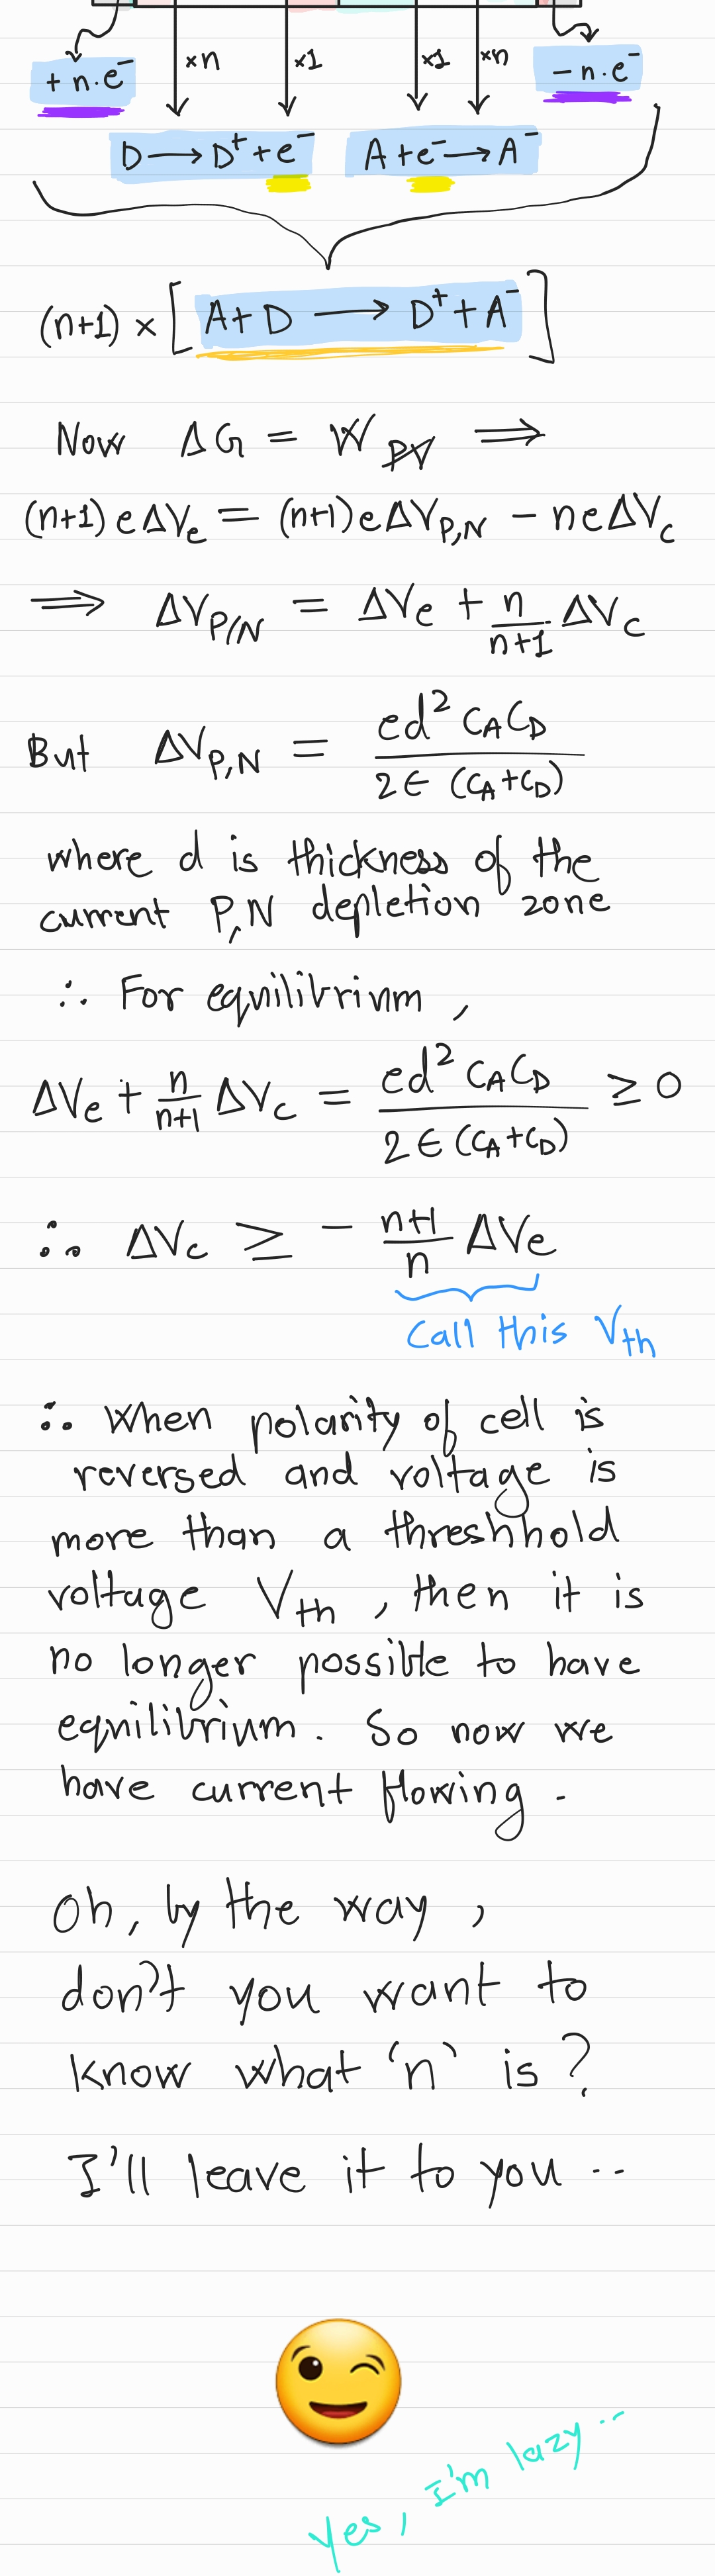 ×n ×1 ×1 ×n
+ n·e⁻ − n·e⁻
D ⟶ D⁺ + e⁻ A + e⁻ ⟶ A⁻
(n+1) × [A + D ⟶ D⁺ + A⁻]
Now ΔG = W_PV ⟹
(n+1)eΔVe = (n+1)eΔV_P,N − neΔVc
⟹ ΔV_P/N = ΔVe + n/(n+1) ΔVc
But ΔV_P,N = ed² C_A C_D / 2ϵ (C_A + C_D)
where d is thickness of the
current P,N depletion zone
∴ For equilibrium,
ΔVe + n/(n+1) ΔVc = ed² C_A C_D / 2ϵ (C_A + C_D) ≥ 0
∴ ΔVc ≥ − (n+1)/n ΔVe
Call this V_th
∴ When polarity of cell is
reversed and voltage is
more than a threshhold
voltage V_th, then it is
no longer possible to have
equilibrium. So now we
have current flowing.
Oh, by the way,
don't you want to
know what 'n' is?
I'll leave it to you..
Yes, I'm lazy..